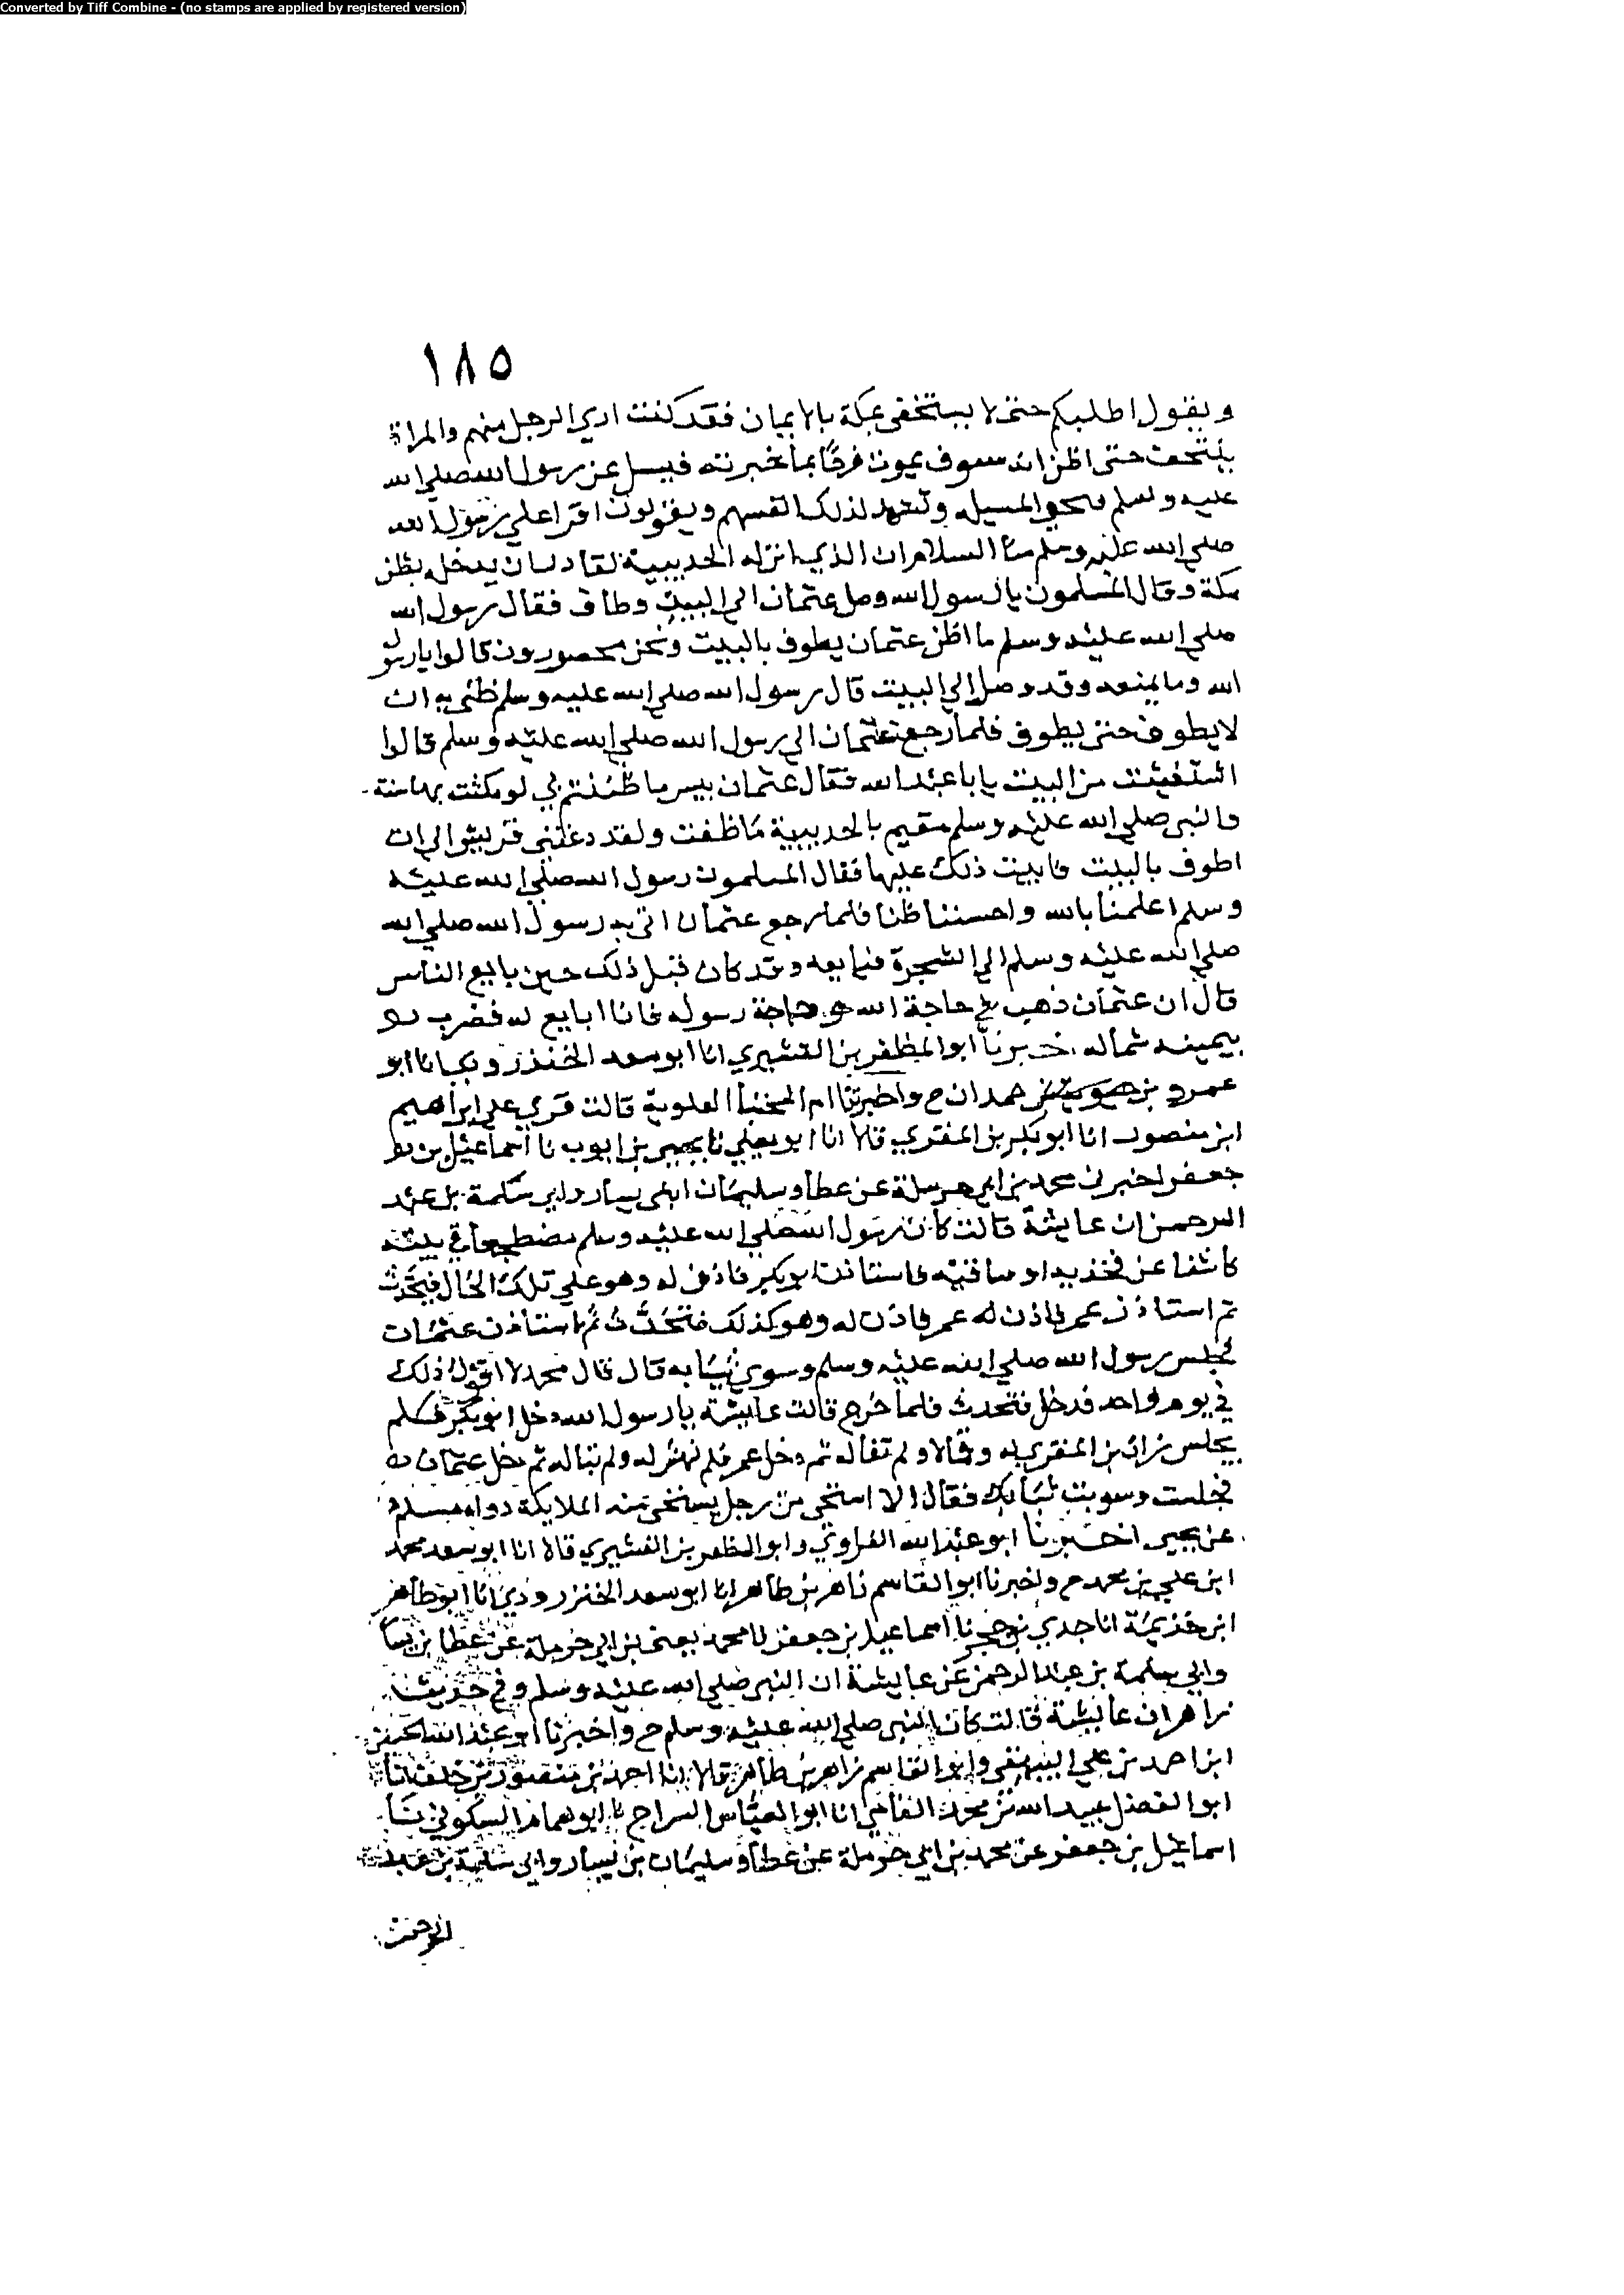 Converted by Tiff Combine - (no stamps are applied by registered version)
١٨٥
ويقول اطلبكم حتى لا يستخفى بمكة بالايمان فقد كنت ارى الرجل منهم والمراة
ينتحب حتى اظن انه سوف يموت فرحًا بما خبرته فيسل عن رسول الله صلى الله
عليه وسلم المسيله لذلك انفسهم ويقولون اقرا على رسول الله
صلى الله عليه وسلم منا السلام ان الذي انزله الحديبية لقادر ان يدخله بطن
مكة وقال المسلمون يا رسول الله وصل عثمان الى البيت وطاف فقال رسول الله
صلى الله عليه وسلم ما اظن عثمان يطوف بالبيت ونحن محصورون قالوا يا رسول
الله وما يمنعه وقد وصل الى البيت قال رسول الله صلى الله عليه وسلم ظنى به ان
لا يطوف حتى يطوف فلما رجع عثمان الى رسول الله صلى الله عليه وسلم قالوا
اشتفيت من البيت يا با عبد الله فقال عثمان بيس ما ظننتم بي لو مكثت بها سنة
والنبى صلى الله عليه وسلم مقيم بالحديبية ما طفت ولقد دعتنى قريش الى ان
اطوف بالبيت فابيت ذلك عليها فقال المسلمون رسول الله صلى الله عليه
وسلم اعلمنا بالله واحسننا ظنا فلما رجع عثمان اتى به رسول الله صلى الله
صلى الله عليه وسلم الى الشجرة فبايعه وقد كان قبل ذلك حين بايع الناس
قال ان عثمان ذهب في حاجة الله وحاجة رسوله فانا ابايع له فضرب
بيمينه شماله اخبرنا ابو المظفر بن القشيري انا ابو سعد الخنذروي انا ابو
عمرو بن حمدان ح واخبرتنا ام المجتبا العلوية قالت قري على ابراهيم
ابن منصور انا ابو بكر بن المقري قالا انا ابو يعلى نا يحيى بن ايوب نا اسماعيل بن
جعفر اخبرنى محمد بن ابي حرملة عن عطا وسليمان ابنى يسار وابي سلمة بن عبد
الرحمن ان عايشة قالت كان رسول الله صلى الله عليه وسلم مضطجعا في بيته
كاشفا عن فخذيه او ساقيه فاستاذن ابو بكر فاذن له وهو على تلك الحال فتحدث
ثم استاذن عمر فاذن له عمر فاذن له وهو كذلك فتحدث ثم استاذن عثمان
فجلس رسول الله صلى الله عليه وسلم وسوى ثيابه قال قال محمد لا اقول ذلك
في يوم واحد فدخل فتحدث فلما خرج قالت عايشة يا رسول الله دخل ابو بكر فلم
يجلس زاد بن المقري له وقالا ولم تباله ثم دخل عمر فلم تهش له ولم تباله ثم دخل عثمان
فجلست وسويت ثيابك فقال الا استحى من رجل يستحى منه الملايكة رواه مسلم
عن يحيى اخبرنا ابو عبد الله الفراوي وابو المظفر بن القشيري قالا انا ابو سعد محمد
ابن علي بن محمد ح واخبرنا ابو القاسم زاهر بن طاهر انا ابو سعد الخنزروذي انا ابو طاهر
ابن خزيمة انا جدي نا اسماعيل بن جعفر نا محمد يعنى بن ابي حرملة عن عطا بن يسا
وابي سلمة بن عبد الرحمن عن عايشة ان النبى صلى الله عليه وسلم وفي حديث
زاهر ان عايشة قالت كان النبى صلى الله عليه وسلم ح واخبرنا ابو عبد الله
ابن احمد بن علي البيهقى وابو القاسم زاهر بن طاهر قالا انا احمد بن منصور بن خلف انا
ابو الفضل عبيد الله بن محمد الفامي انا ابو العباس السراج نا ابو همام السكوني نا
اسماعيل بن جعفر عن محمد بن ابي حرملة عن عطا وسليمان بن يسار وابي سلمة بن عبد
الرحمن